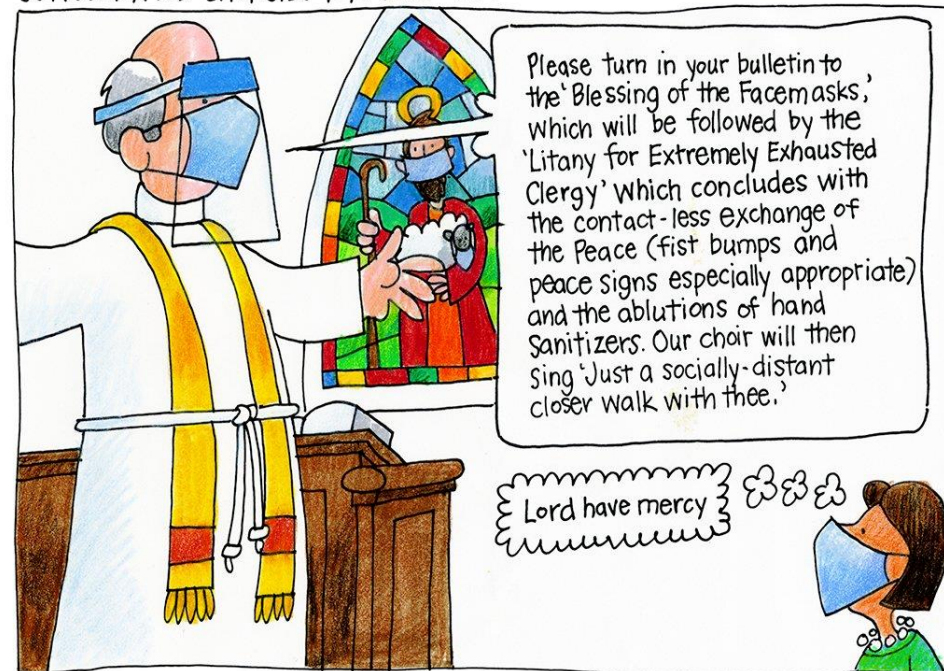 Please turn in your bulletin to
the 'Blessing of the Facemasks,'
which will be followed by the
'Litany for Extremely Exhausted
Clergy' which concludes with
the contact-less exchange of
the Peace (fist bumps and
peace signs especially appropriate)
and the ablutions of hand
sanitizers. Our choir will then
sing 'Just a socially-distant
closer walk with thee.'
Lord have mercy